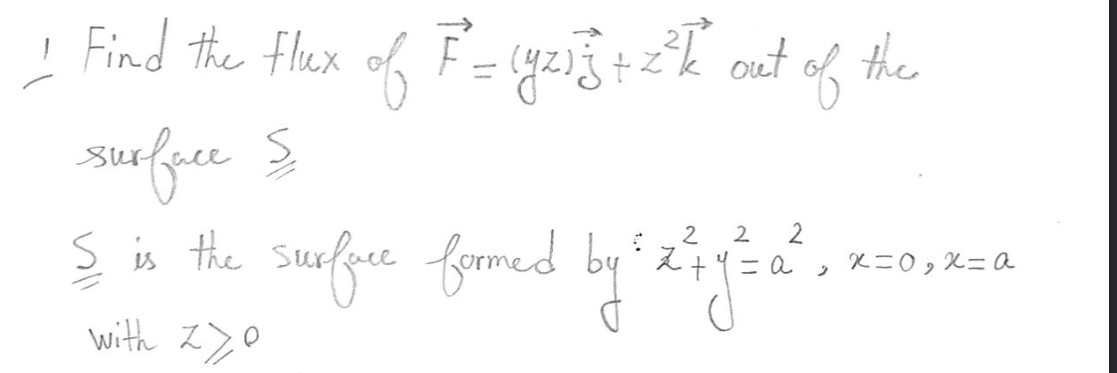 1 Find the flux of F⃗ = (yz)j⃗ + z²k⃗ out of the
surface S
S is the surface formed by : z² + y² = a² , x=0 , x=a
with z ≥ 0